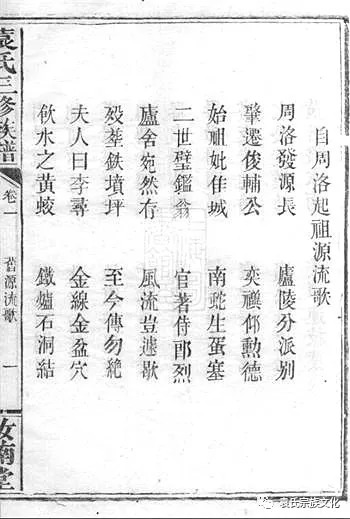 自周洛起祖源流歌
周洛發源長　廬陵分派别
肇遷俊輔公　奕禩仰勲德
始祖妣佳城　南虵生蛋塞
二世璧鑑翁　官著侍郎烈
廬舍宛然存　風流豈遽歇
殁塟鉄墳坪　至今傳勿絶
夫人曰李尋　金線金盆穴
飲水之黄蛟　鐵爐石洞結
袁氏三修族譜
卷一
舊源流歌
一
汝南堂
袁氏宗族文化